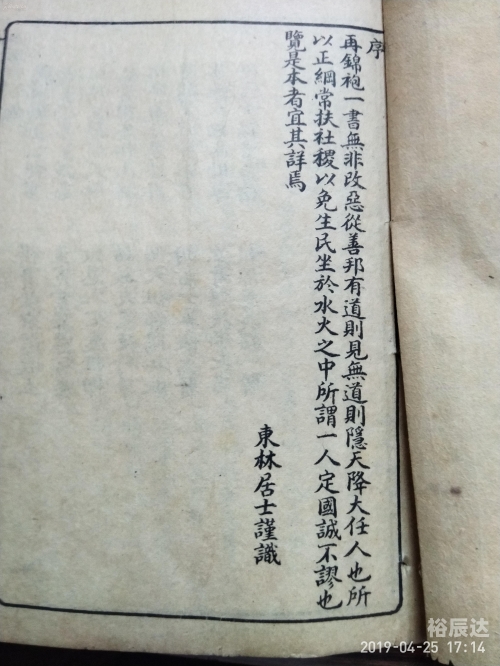 序
再錦袍一書無非改惡從善邦有道則見無道則隱天降大任人也所
以正綱常扶社稷以免生民坐於水火之中所謂一人定國誠不謬也
覽是本者宜其詳焉
東林居士謹識
裕辰达
2019-04-25 17:14